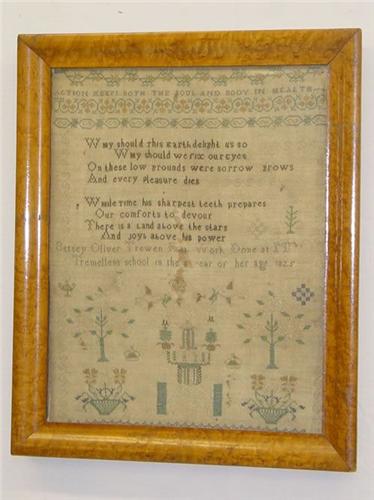 ACTION KEEPS BOTH THE SOUL AND BODY IN HEALTH
Why should this Earth delight us so
Why should we fix our eyes
On these low grounds were sorrow grows
And every pleasure dies
While time his sharpest teeth prepares
Our comforts to devour
There is a land above the stars
And joys above his power
Betsey Oliver Trewen Work Done at
Tremellens school in the year of her age